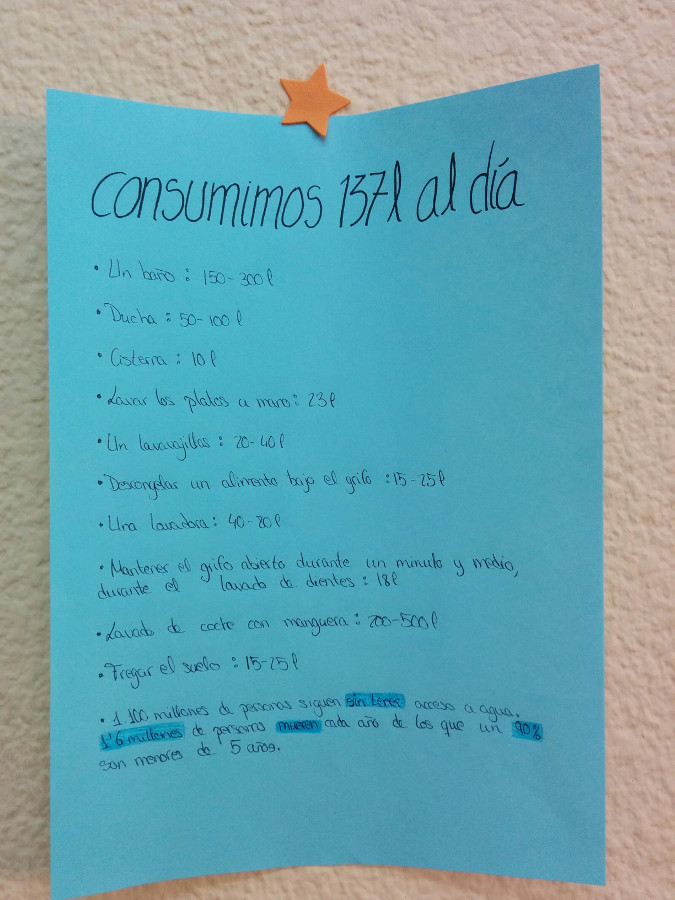 Consumimos 137l al día
• Un baño: 150-300l
• Ducha: 50-100l
• Cisterna: 10l
• Lavar los platos a mano: 23l
• Un lavavajillas: 20-40l
• Descongelar un alimento bajo el grifo: 15-25l
• Una lavadora: 40-80l
• Mantener el grifo abierto durante un minuto y medio,
durante el lavado de dientes: 18l
• Lavado de coche con manguera: 200-500l
• Fregar el suelo: 15-25l
• 1 100 millones de personas siguen sin tener acceso a agua.
1'6 millones de personas mueren cada año de los que un 90%
son menores de 5 años.